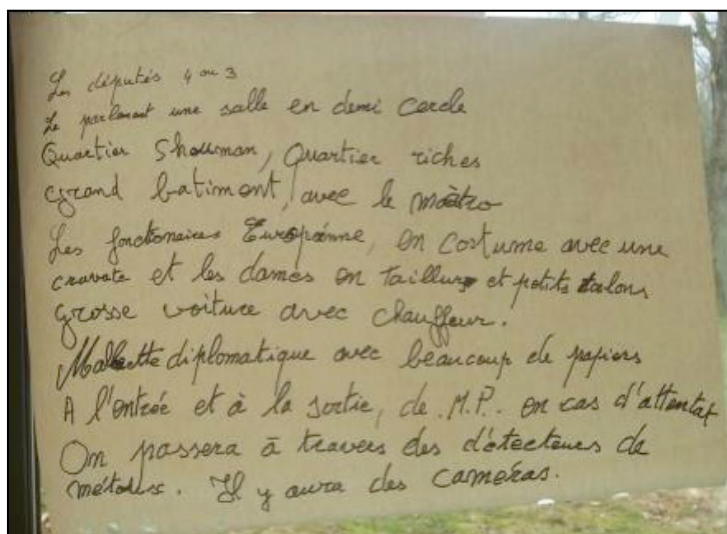 Les députés 4 ou 3
Le parlement une salle en demi cercle
Quartier Shouman, Quartier riches
grand batiment, avec le mètro
Les fonctionaires Europénne, en costume avec une
cravate et les dames en tailleur et petits talons
grosse voiture avec chauffeur.
Mallette diplomatique avec beaucoup de papiers
A l'entrée et à la sortie, de M.P. en cas d'attentat
On passera à travers des détecteurs de
métaux. Il y aura des caméras.